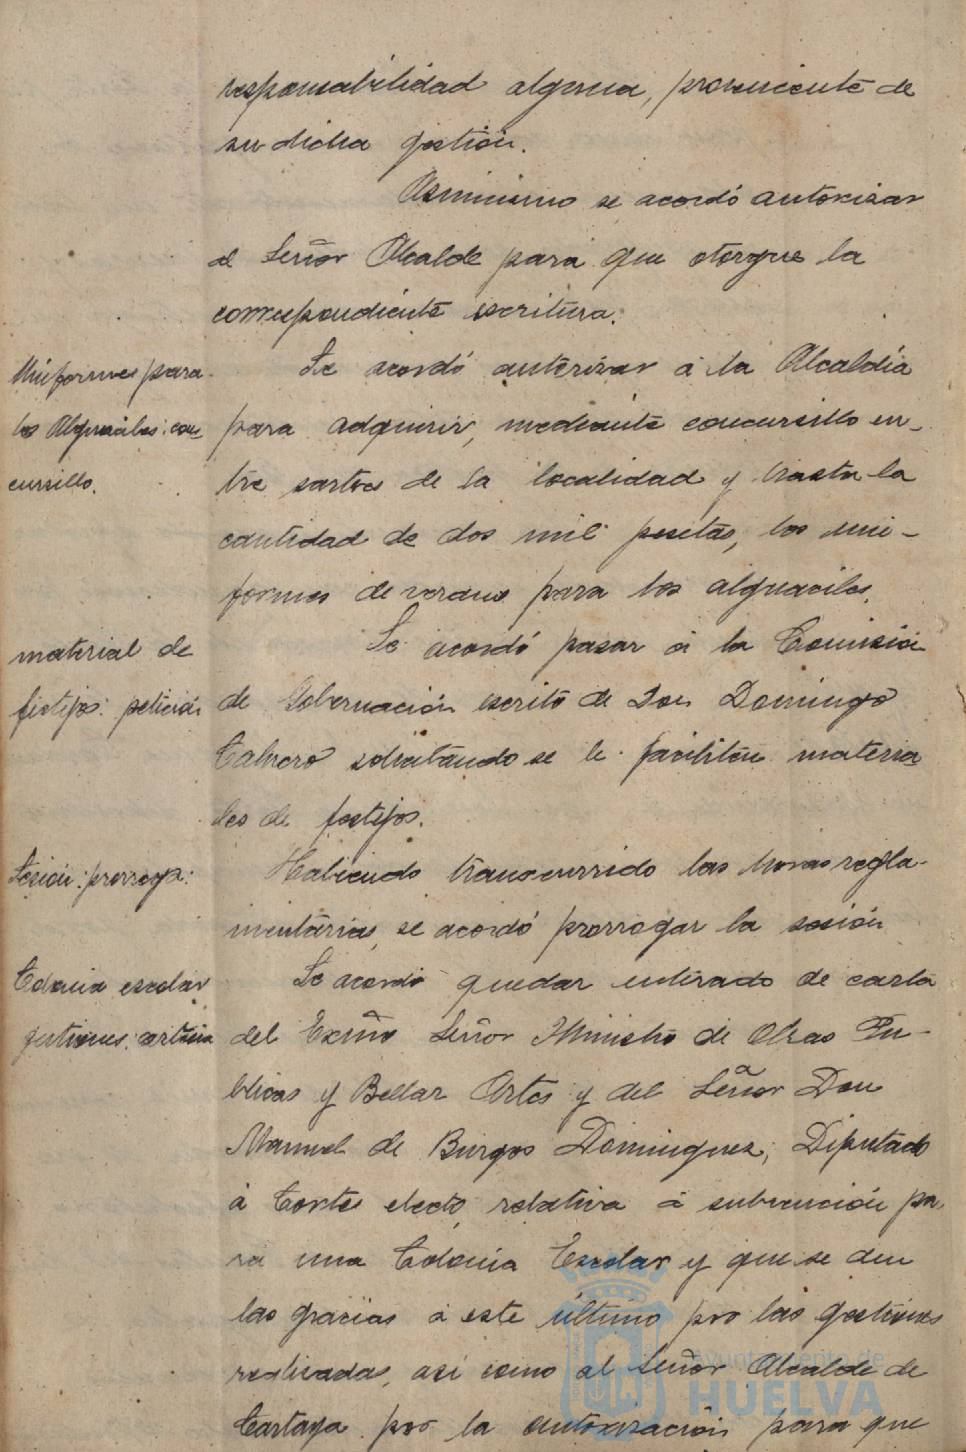 responsabilidad alguna, proveniente de
su dicha gestión.
Asimismo se acordó autorizar
al Señor Alcalde para que otorgue la
correspondiente escritura.
Uniformes para
los Alguaciles: con-
cursillo.
Se acordó autorizar á la Alcaldía
para adquirir, mediante concursillo en-
tre sastres de la localidad y hasta la
cantidad de dos mil pesetas, los uni-
formes de verano para los alguaciles.
material de
festejos: petición
Se acordó pasar á la Comisión
de Gobernación escrito de Don Domingo
solicitando se le faciliten materia
les de festejos.
Sesión: prorroga:
Habiendo transcurrido las horas regla-
mentarias, se acordó prorrogar la sesión
Colonia escolar
gestiones:
Se acordó quedar enterado de carta
del Exmo Señor Ministro de Obras Pú-
blicas y Bellas Artes y del Señor Don
Manuel de Burgos Dominguez, Diputado
á Cortes electo, relativa á subvención pa-
ra una Colonia Escolar y que se den
las gracias á este último por las gestiones
realizadas, asi como al Señor Alcalde de
Cartaya por la autorización para que
Ayuntamiento de
HUELVA